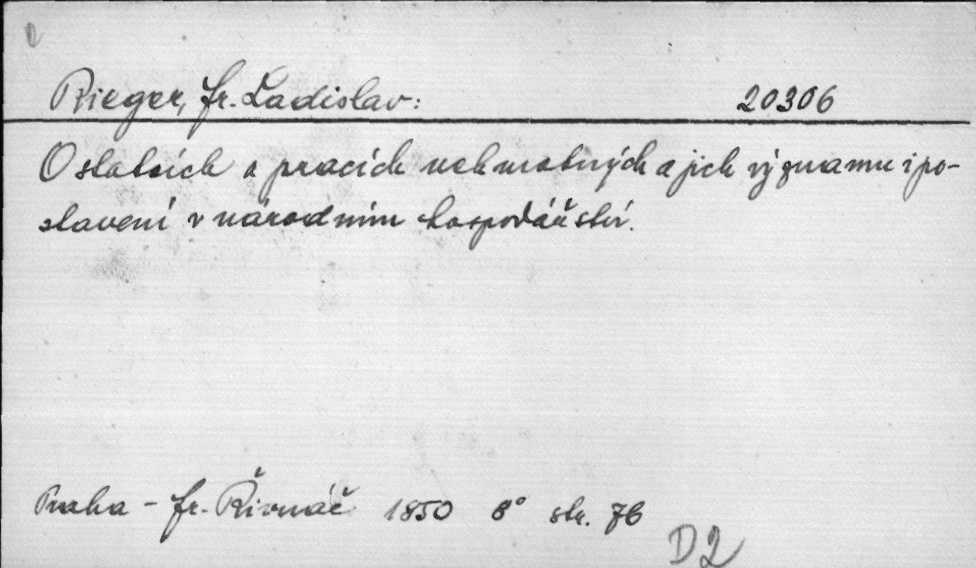 Rieger, Fr. Ladislav: 20306
O statcích a pracích nehmotných a jich významu i po-
stavení v národním hospodářství.
Praha - Fr. Řivnáč 1850 8° str. 76
D2